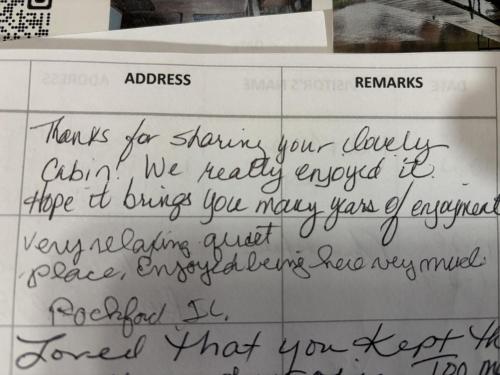 ADDRESS REMARKS
Thanks for sharing your lovely
Cabin! We really enjoyed it.
Hope it brings you many years of enjoyment
Very relaxing quiet
place, Enjoyed being here very much.
Rockford IL.
Loved that you kept th